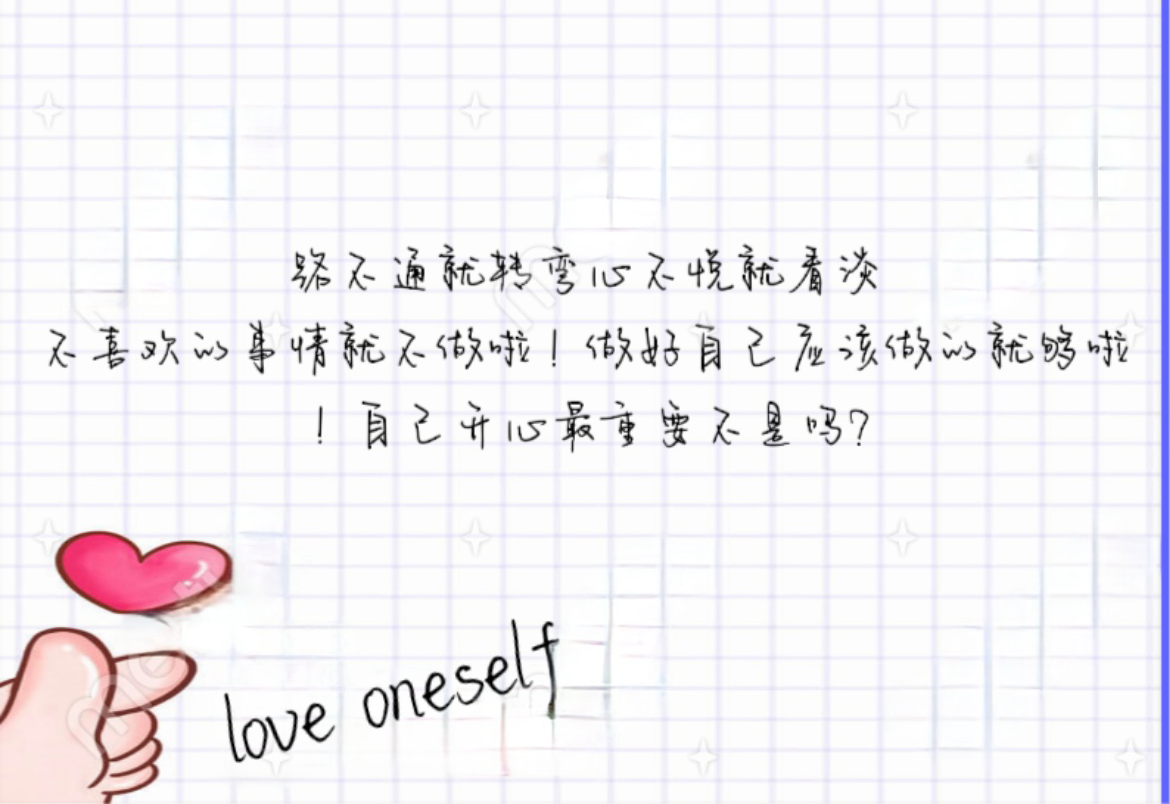 路不通就转弯心不悦就看淡
不喜欢的事情就不做啦！做好自己应该做的就够啦
！自己开心最重要不是吗？
love oneself